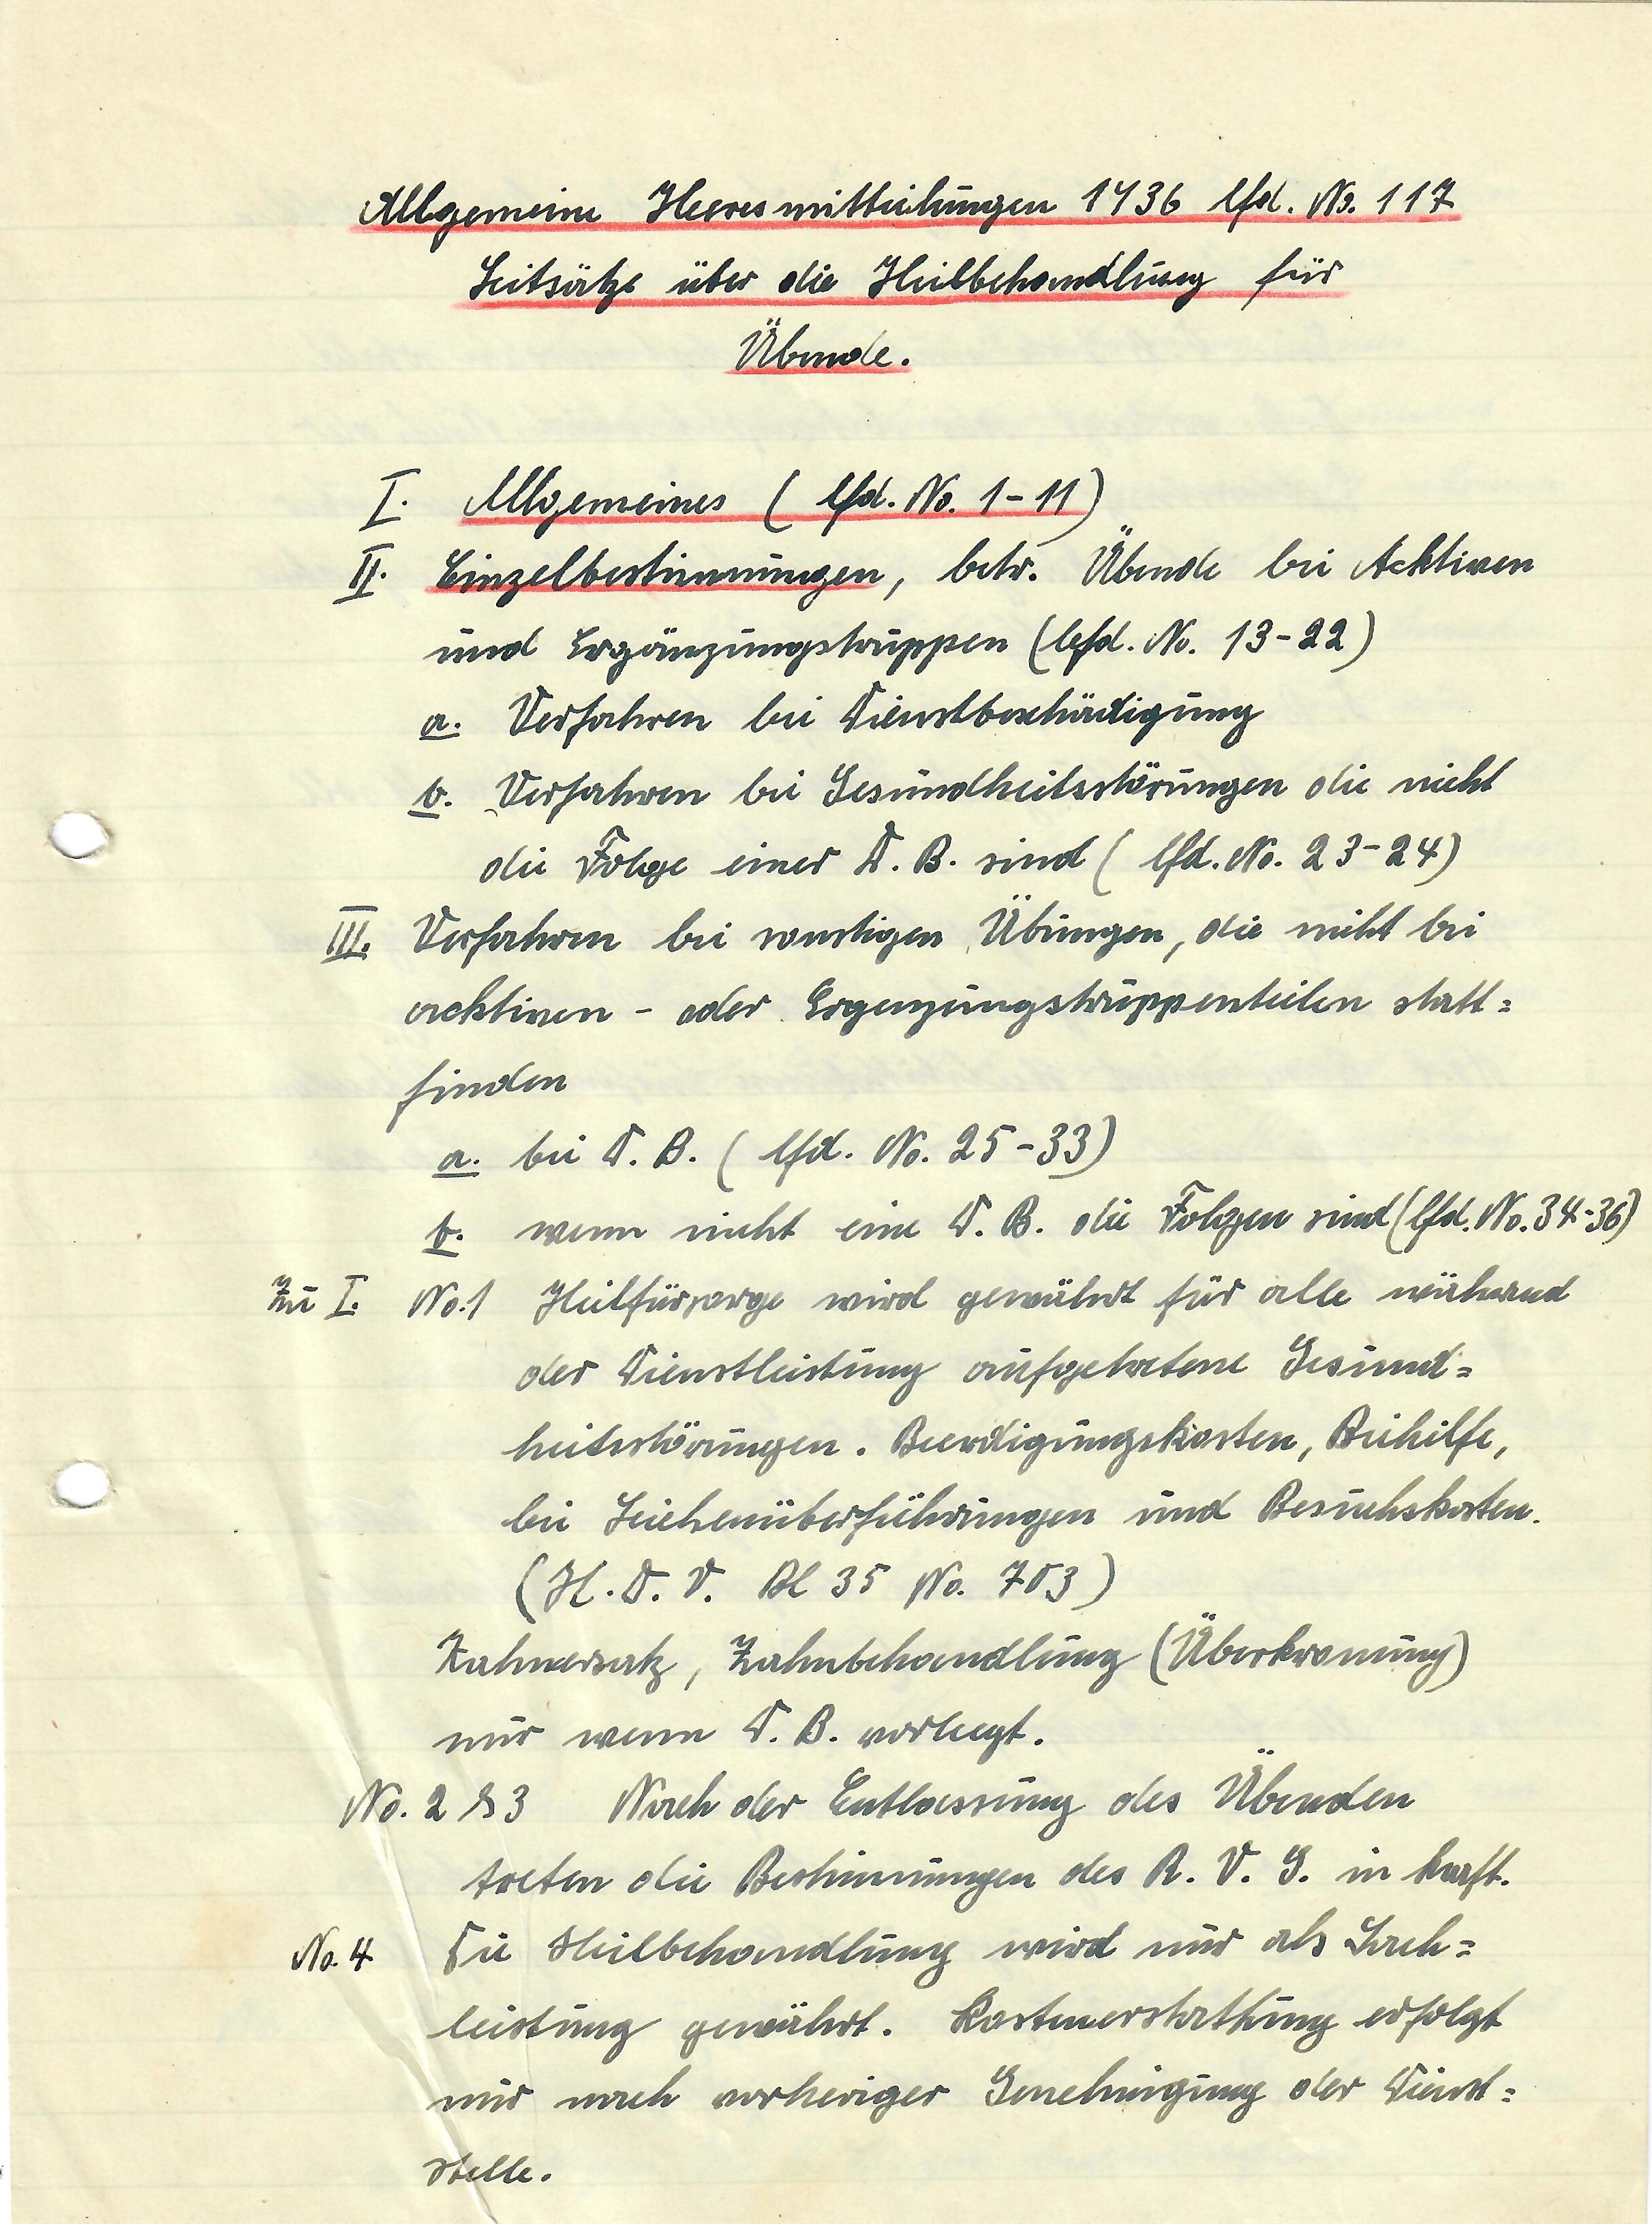 Allgemeine Heeresmitteilungen 1936 lfd. No. 117
Leitsätze über die Heilbehandlung für
Übende.
I. Allgemeines ( lfd. No. 1-11)
II. Einzelbestimmungen, betr. Übende bei Acktiven
und Ergänzungstruppen (lfd. No. 13-22)
a. Verfahren bei Dienstbeschädigung
b. Verfahren bei Gesundheitsstörungen die nicht
die Folge einer D. B. sind ( lfd. No. 23-24)
III. Verfahren bei sonstigen Übungen, die nicht bei
acktiven - oder Ergenzungstruppenteilen statt=
finden
a. bei D. B. ( lfd. No. 25-33)
b. wenn nicht eine D. B. die Folgen sind (lfd. No. 34-36)
Zu I. No. 1 Heilfürsorge wird gewährt für alle während
der Dienstleistung aufgetretene Gesund=
heitsstörungen. Beerdigungskosten, Beihilfe,
bei Leichenüberführungen und Besuchskosten.
(H. D. V. Bl 35 No. 703)
Zahnersatz, Zahnbehandlung (Überkronung)
nur wenn D. B. vorliegt.
No. 2 & 3 Nach der Entlassung des Übenden
treten die Bestimmungen des R. V. G. in kraft.
No. 4 Die Heilbehandlung wird nur als Sach=
leistung gewährt. Kostenerstattung erfolgt
nur nach vorheriger Genehmigung der Dienst=
stelle.